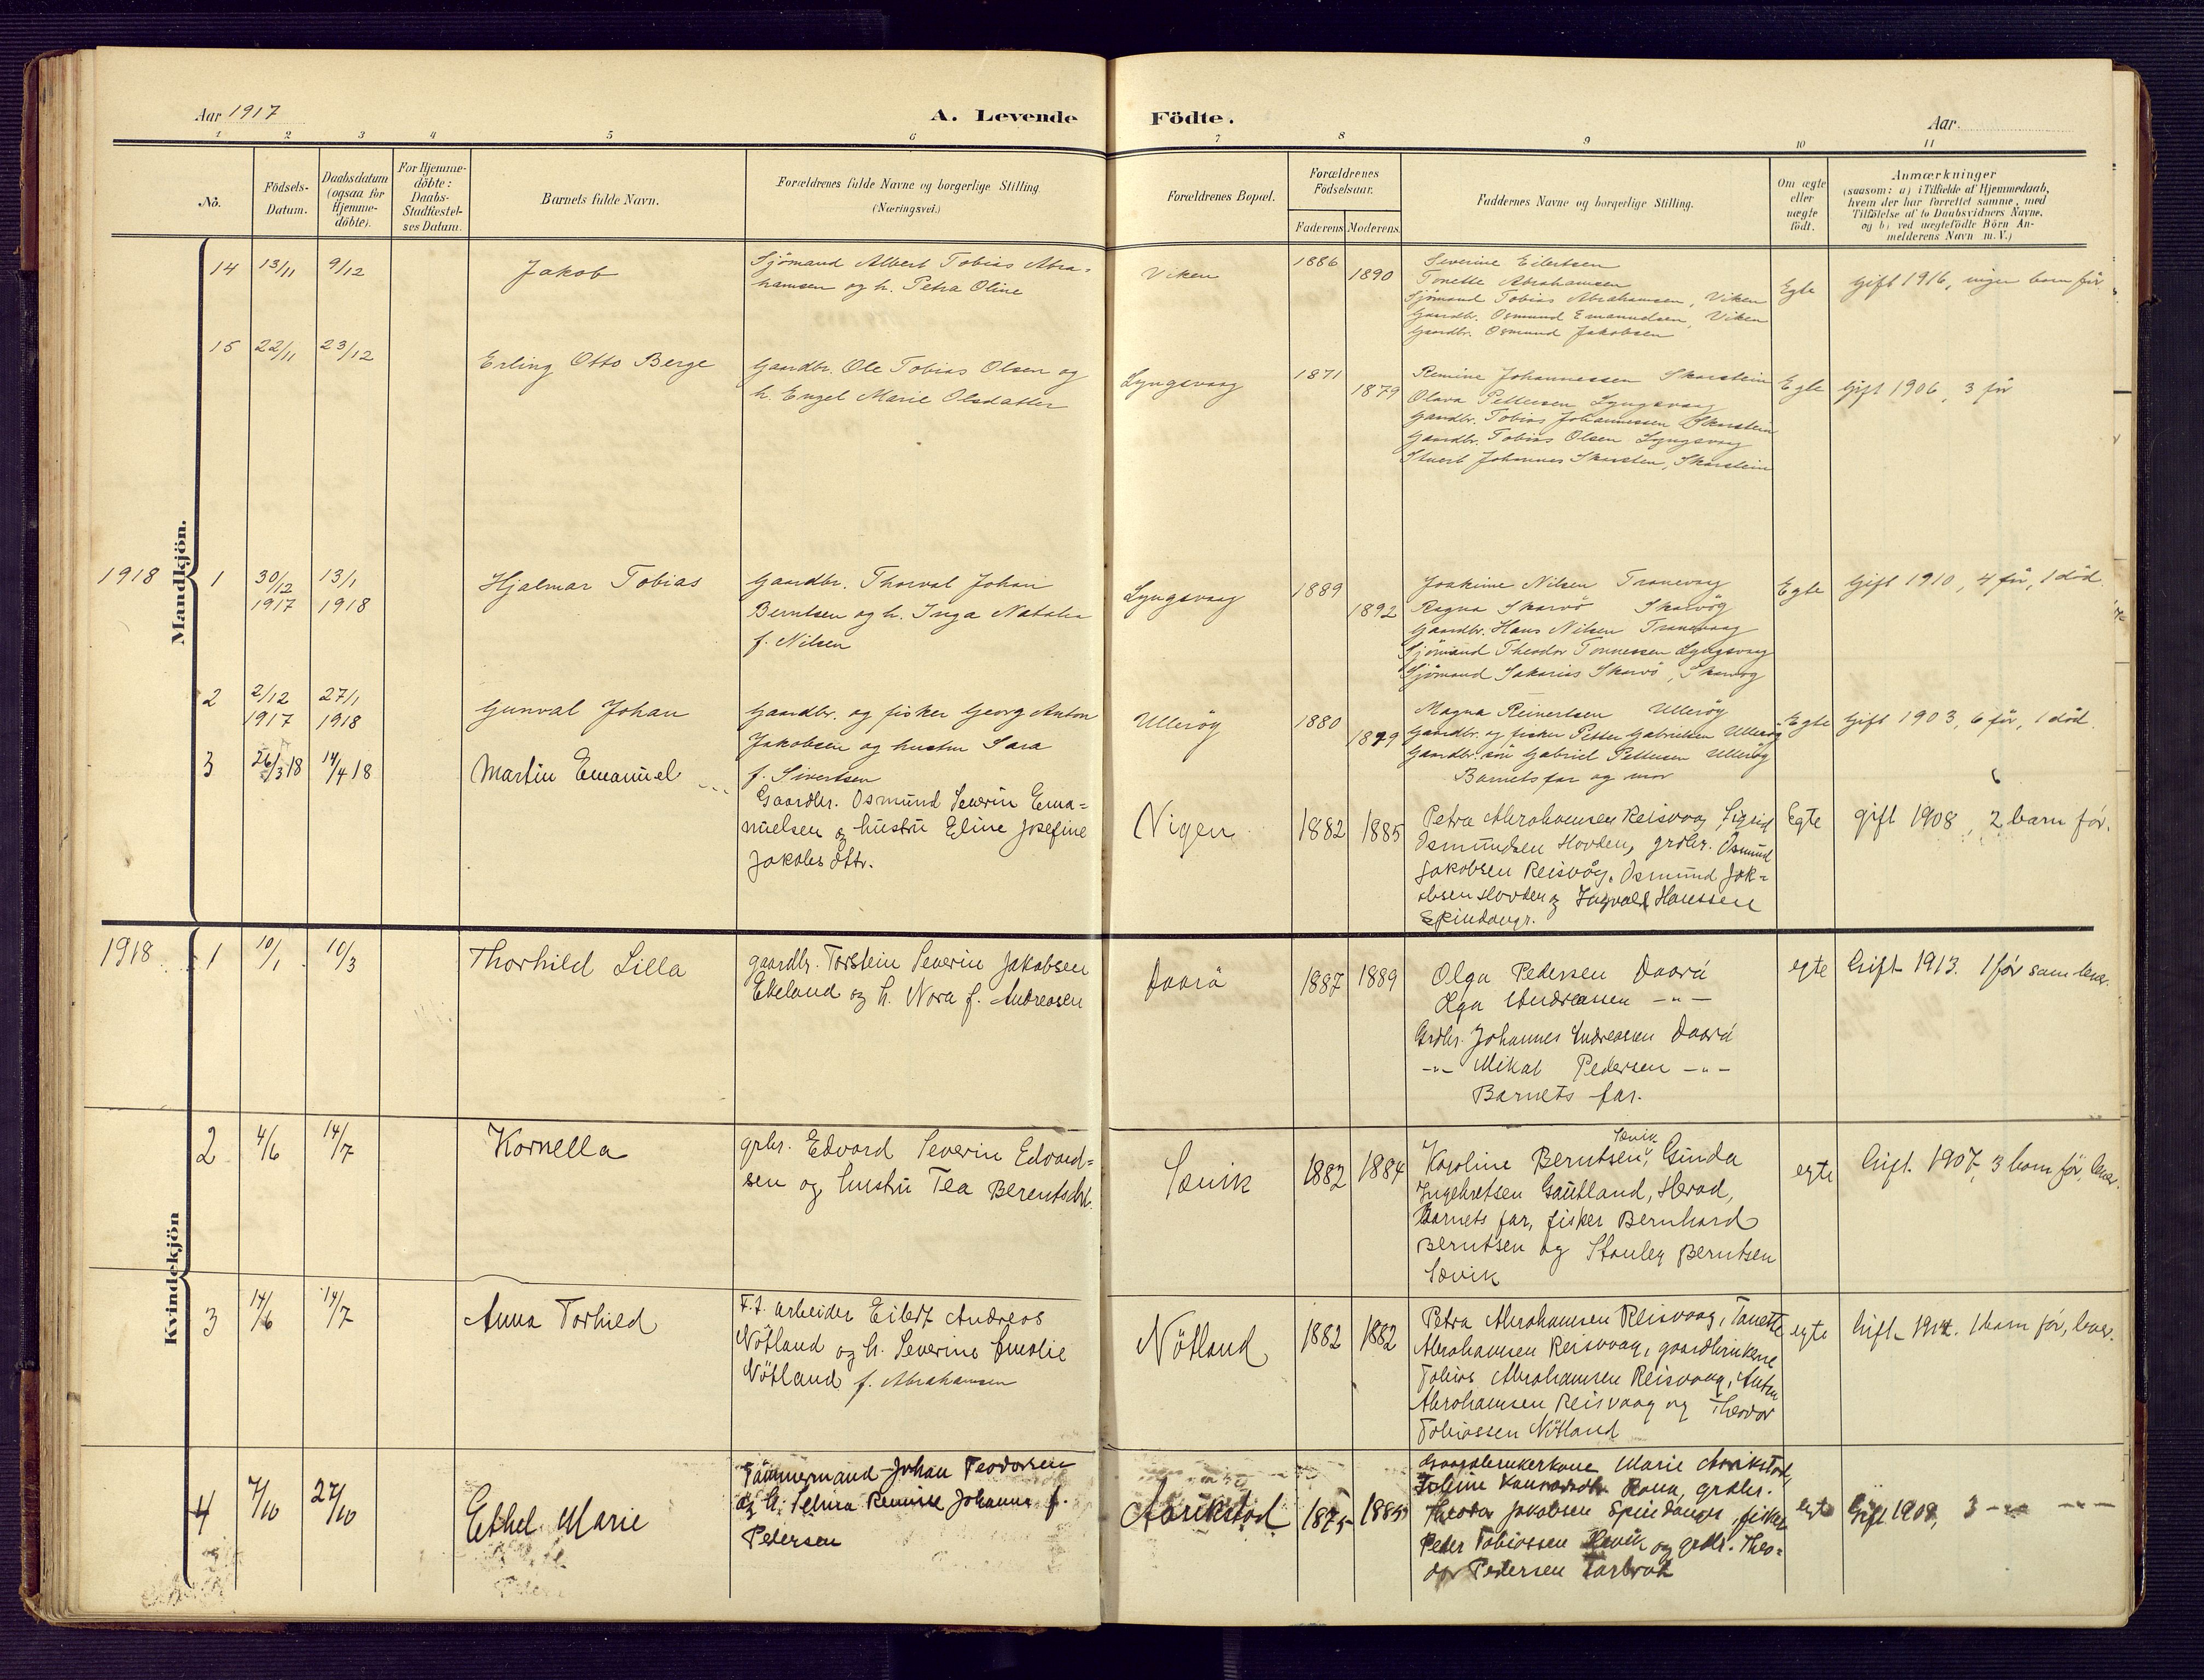 Aar 1917
A. Levende
Födte.
Aar
1 2 3 4 5 6 7 8 9 10 11
No.
Födsels-
Datum.
Daabsdatum
(ogsaa for
Hjemme-
döbte).
For Hjemme-
döbte:
Daabs-
Stadfæstel-
ses Datum.
Barnets fulde Navn.
Forældrenes fulde Navne og borgerlige Stilling
(Næringsvei.)
Forældrenes Bopæl.
Forældrenes
Födselsaar.
Faderens
Moderens.
Faddernes Navne og borgerlige Stilling.
Om ægte
eller
uægte
födt.
Anmærkninger
(saasom: a) i Tilfælde af Hjemmedaab,
hvem der har forrettet samme, med
Tilföielse af to Daabsvidners Navne,
og b) ved uægtefödte Börn An-
melderens Navn m. V.)
Mandkjön.
14 13/11 9/12 Jakob
Sjömand Albert Tobias Abra=
hamsen og h. Petra Oline
Viken 1886 1890
Severine Eilertsen
Tonette Abrahamsen
Sjömand Tobias Abrahamsen, Viken
Gaardbr. Osmund Emanuelsen, Viken
Gaardbr. Osmund Jakobsen
Egte Gift 1916, ingen barn før
15 22/11 23/12 Erling Otto Berge
Gaardbr. Ole Tobias Olsen og
h. Engel Marie Olsdatter
Lyngsvaag 1871 1879
Remine Johannessen Skarstein
Olava Pettersen Lyngsvaag
Gaardbr. Tobias Johannessen Skarstein
Gaardbr. Tobias Olsen Lyngsvaag
Johannes Skarstein, Skarstein
Egte Gift 1906, 3 før
1918
1 30/12 1917 13/1 1918 Hjalmar Tobias
Gaardbr. Thorval Johan
Berntsen og h. Inga Natalia
f. Nilsen
Lyngsvaag 1889 1892
Joakime Nilsen Tranevaag
Ragna Skarvö Skarvög
Gaardbr. Hans Nilsen Tranevaag
Sjömand Theodor Tönnessen Lyngsvaag
Sjömand Sakarias Skarvö, Skarvög
Egte Gift 1910, 4 før, 1 död
2 2/12 1917 27/1 1918 Gunval Johan
Gaardbr. og fisker Georg Anton
Jakobsen og hustru Sara
f. Sivertsen
Ulleröy 1880 1879
Magna Reinertsen Ulleröy
Gaardbr. og fisker Petter Gabrielsen Ulleröy
Gaardbr. sön Gabriel Pettersen Ulleröy
Barnets far og mor
Egte Gift 1903, 6 før, 1 död.
3 26/3 18 14/4 18 Martin Emanuel
Gaardbr. Osmund Severin Ema=
nuelsen og hustru Eline Josefine
Jakobsdttr.
Vigen 1882 1885
Petra Abrahamsen Reisvaag, Sigrid
Osmundsen Hovden, grdbr. Osmund
Jakobsen Reisvåg, Osmund Jak=
obsen Hovden og Ingvald Hanssen
Spindangr.
Egte gift 1908, 2 barn før.
Kvindekjön
1918
1 10/1 10/3 Thorhild Lilla
gaardbr. Torstein Severin Jakobsen
Ekeland og h. Nora f. Andreasen
Daarå 1887 1889
Olga Pedersen Daarå
Olga Andreassen -"-
Grdbr. Johannes Andreasen Daarå
-"- Mikal Pedersen -"-
Barnets far.
egte Gift 1913. 1 før som lever.
2 4/6 14/7 Kornella
grbr. Edvard Severin Edvard=
sen og hustru Tea Berentsdtr.
Sævik 1882 1884
Sævik
Karoline Berntsen, Ginda
Ingebretsen Gautland, Herad,
Barnets far, fisker Bernhard
Berntsen og Stanley Berntsen
Sævik
egte Gift 1907, 3 barn før, lever.
3 14/6 14/7 Anna Torhild
F.t. arbeider Eilert Andreas
Nötland og h. Severine Amalie
Nötland f. Abrahamsen
Nötland 1882 1882
Petra Abrahamsen Reisvaag, Tanette
Abrahamsen Reisvaag, gaardbrukerne
Tobias Abrahamsen Reisvaag, Anton
Abrahamsen Reisvaag og Theodor
Tobiassen Nötland
egte Gift 1914. 1 barn før, lever.
4 7/10 27/10 Ethel Marie
Tömmermand Johan Teodorsen
og h. Remise Johanne f.
Pedersen
1875 1885
Gaardbrukerkone Marie
Rana, grdbr.
Theodor Jakobsen Spindanger, fisker
Peder Tobiassen og grdbr. Theo=
dor Pedersen
egte Gift 1909, 3 -"- -"-